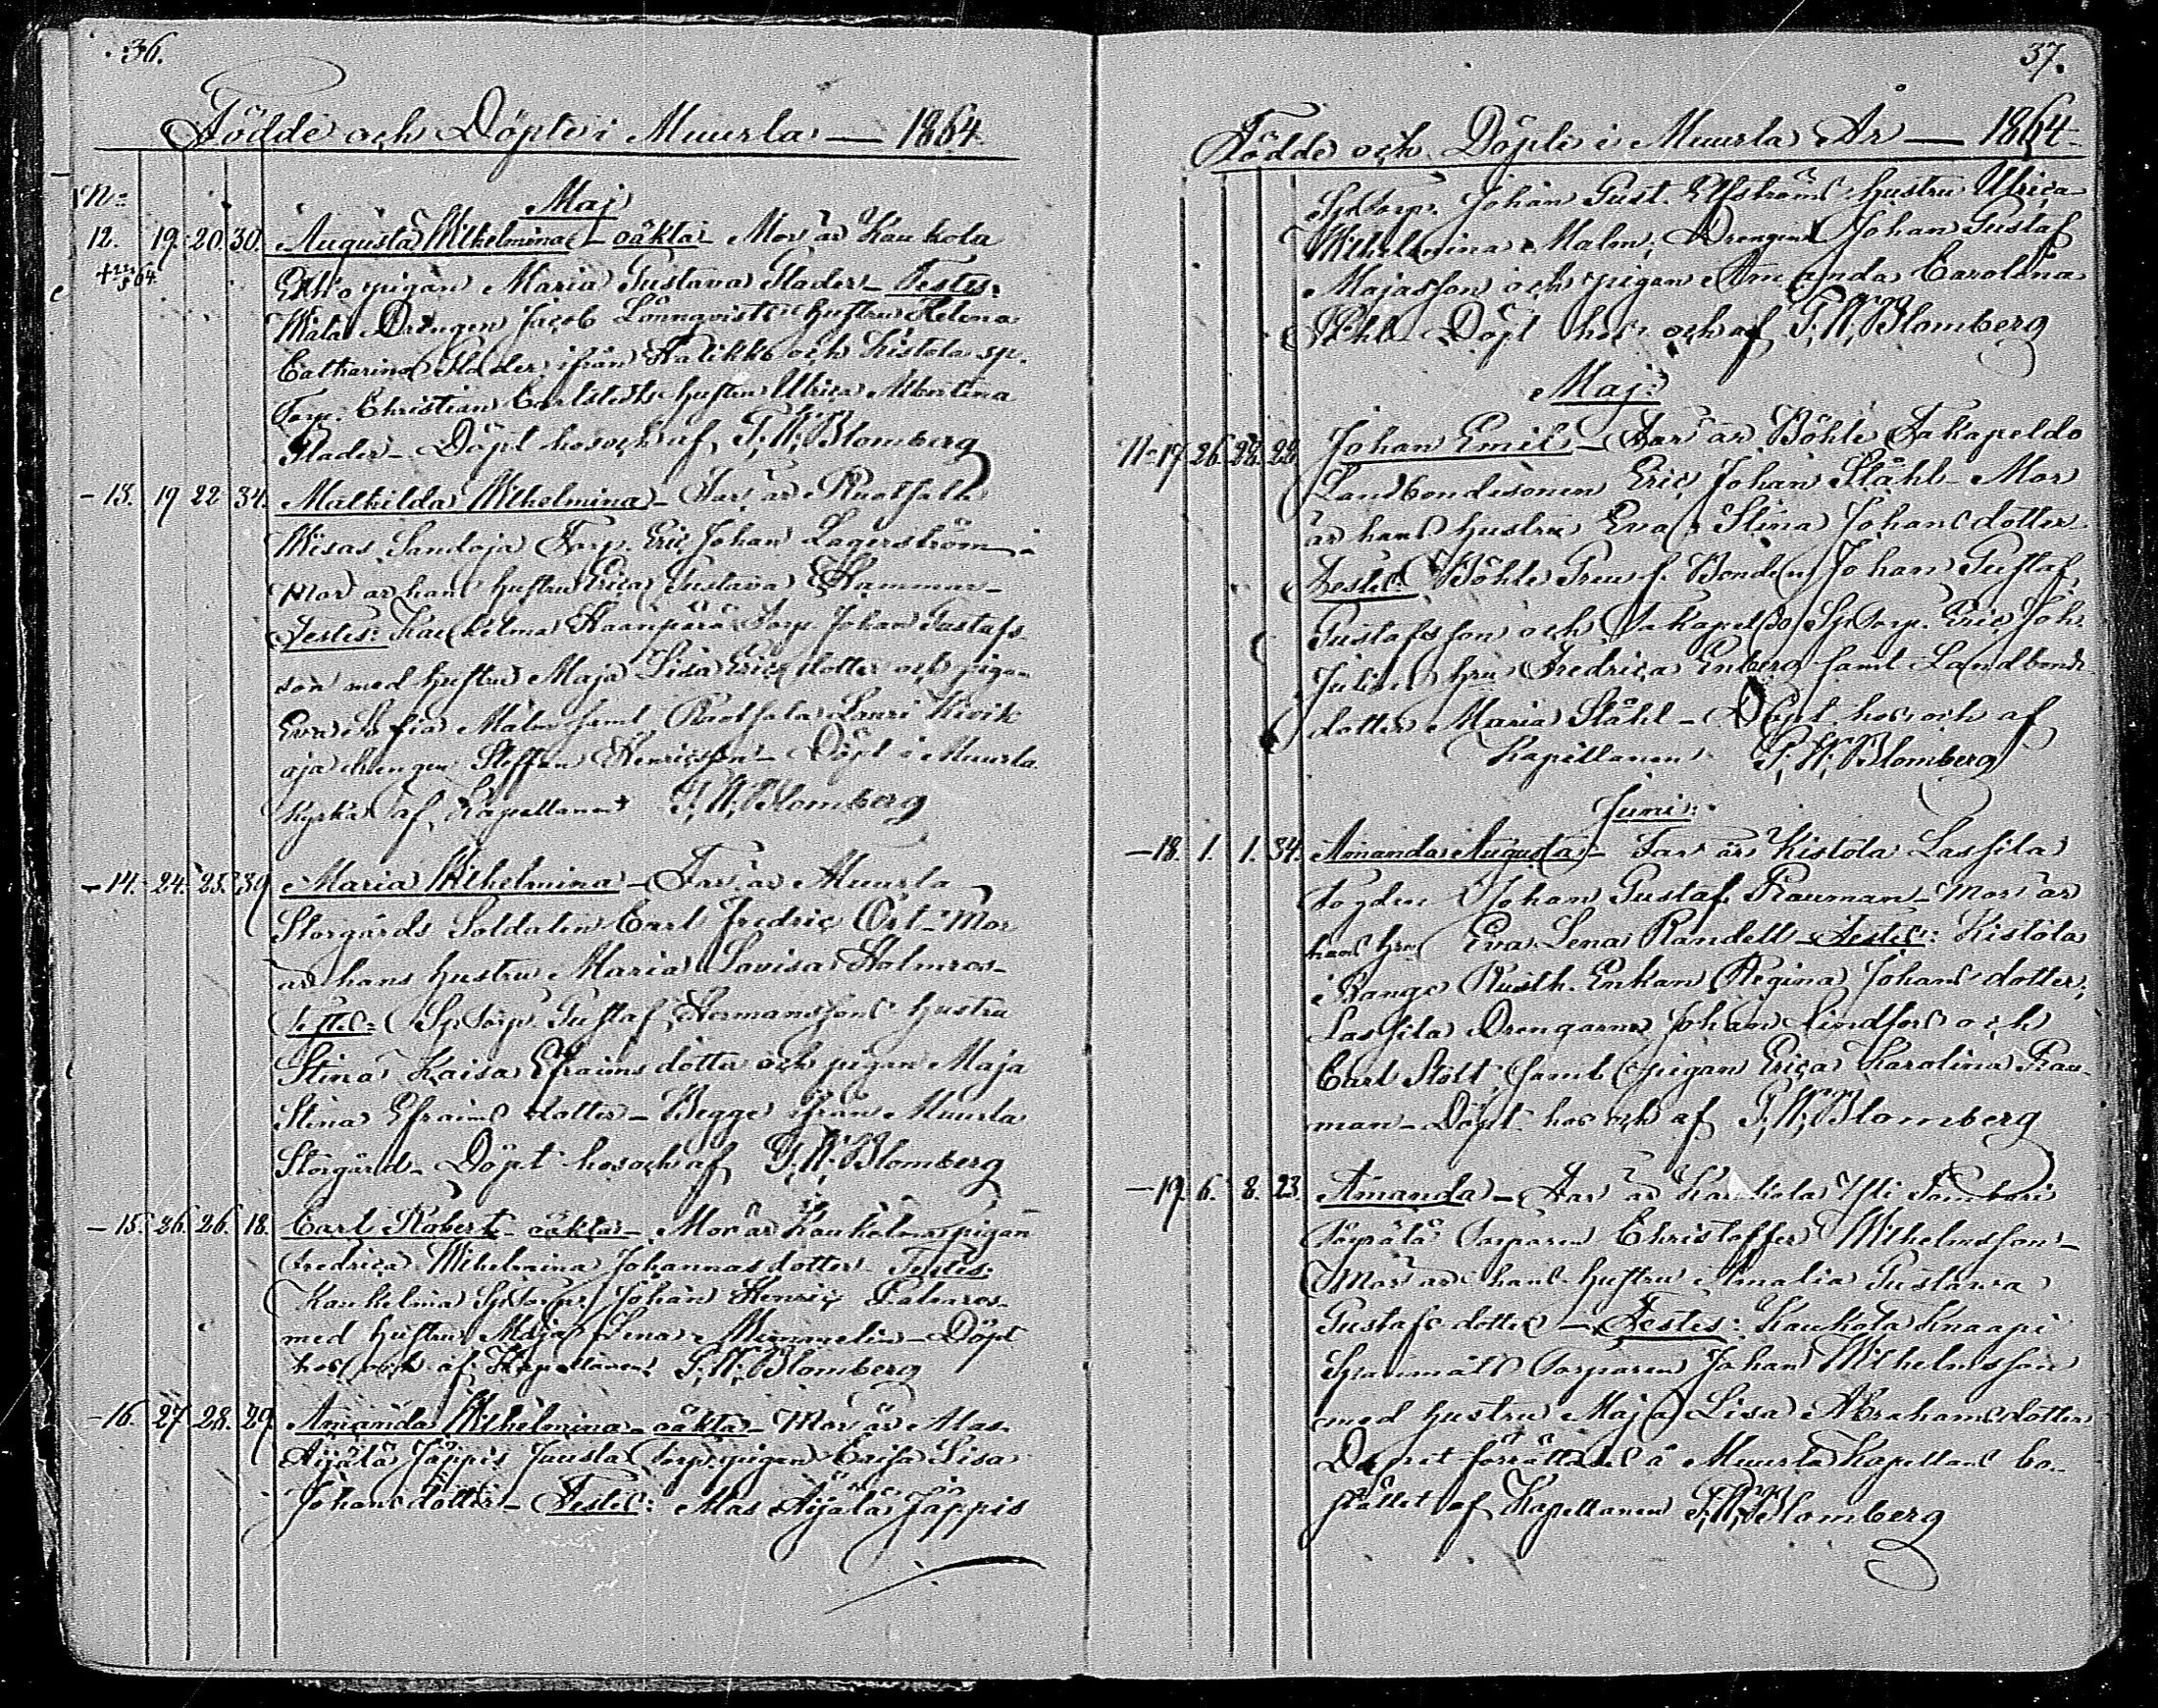 36.
Födde och Döpte i Muurla — 1864.
Maj
N:o
12. 19. 20. 30. Augusta Wilhelmina – oäkta – Mor är Kaukola
pigan Maria Gustava Flader – Testes:
Drengen Jacob Lönnqvists hustru Helena
Catharina Flader ifrån Halikko och Kistola sp.
Torp. Christian Carlstedts hustru Ulrica Albertina
Flader – Döpt hos och af F. W. Blomberg
– 13. 19 22 34. Mathilda Wilhelmina – Far är Ruotsala
Wisas Sandoja Torp. Eric Johan Lagerström –
Mor är hans hustru Erica Gustava Hammar –
Testes: Kaukelma Haanpärä Torp. Johan Gustafs-
son med hustru Maja Lisa Ericsdotter och pigan
Eva Sofia Malm samt Ruotsala Lauri Kivik
oja drengen Steffan Henricsson – Döpt i Muurla
Kyrka af Kapellanen F. W. Blomberg
– 14. 24. 25. 39 Maria Wilhelmina – Far är Muurla
Storgårds Soldaten Carl Fredric Ört – Mor
är hans hustru Maria Lovisa Holmros –
Testes: Sp. Torp. Gustaf Hermanssons hustru
Stina Kaisa Efraimsdotter och pigan Maja
Stina Efraimsdotter – Begge ifrån Muurla
Storgård – Döpt hos och af F. W. Blomberg
– 15. 26. 26. 18. Carl Robert – oäkta – Mor är Kaukelma pigan
Fredrica Wilhelmina Johannasdotter – Testes:
Kaukelma Sp. Torpar. Johan Henric Palmros
med hustru Maja Lena – Döpt
hos och af Kapellanen F. W. Blomberg
– 16. 27 28. 29 Amanda Wilhelmina – oäkta – Mor är Mas-
Äijälä Jäppis Juusla Torp. pigan Caisa Lisa
Johansdotter – Testes: Mas Äijälä Jäppis
37.
Födde och Döpte i Muurla År — 1864.
Sp. Torp. Johan Gust. Elfströms hustru Ulrica
Wilhelmina Malm, Drengen Johan Gustaf
Majasson och pigan Amanda Carolina
Döpt hos och af F. W. Blomberg
Maj:
N:o 17. 26. 28. 28. Johan Emil – Far är Böhle Takapeldo
Landbondesonen Eric Johan Ståhl – Mor
är hans hustru Eva Stina Johansdotter
Testes: Böhle Bonden Johan Gustaf
Gustafsson och Takapeldo Sp. Torp. Eric Joh.
hru Fredrica Enberg samt Landbonde
dotter Maria Ståhl – Döpt hos och af
Kapellanen F. W. Blomberg
Juni:
– 18. 1. 1. 34. Amanda Augusta – Far är Kistola Lassila
Fogden Johan Gustaf Rauman – Mor är
hans hru Eva Lena Randell – Testes: Kistola
Bange Rusth. Enkan Regina Johansdotter,
Lassila Drengarne Johan Lindfors och
Carl Stolt, samt pigan Erica Karolina Rau-
man – Döpt hos och af F. W. Blomberg
– 19. 6. 8. 23. Amanda – Far är Kaukola Yli
Torparen Christoffer Wilhelmsson –
Mor är hans hustru Amalia Gustava
Gustafsdotter – Testes: Kaukola Knaapi
Torparen Johan Wilhelmsson
med hustru Maja Lisa Abrahamsdotter
Dopet förrättades å Muurla Kapellans bo-
stället af Kapellanen F. W. Blomberg